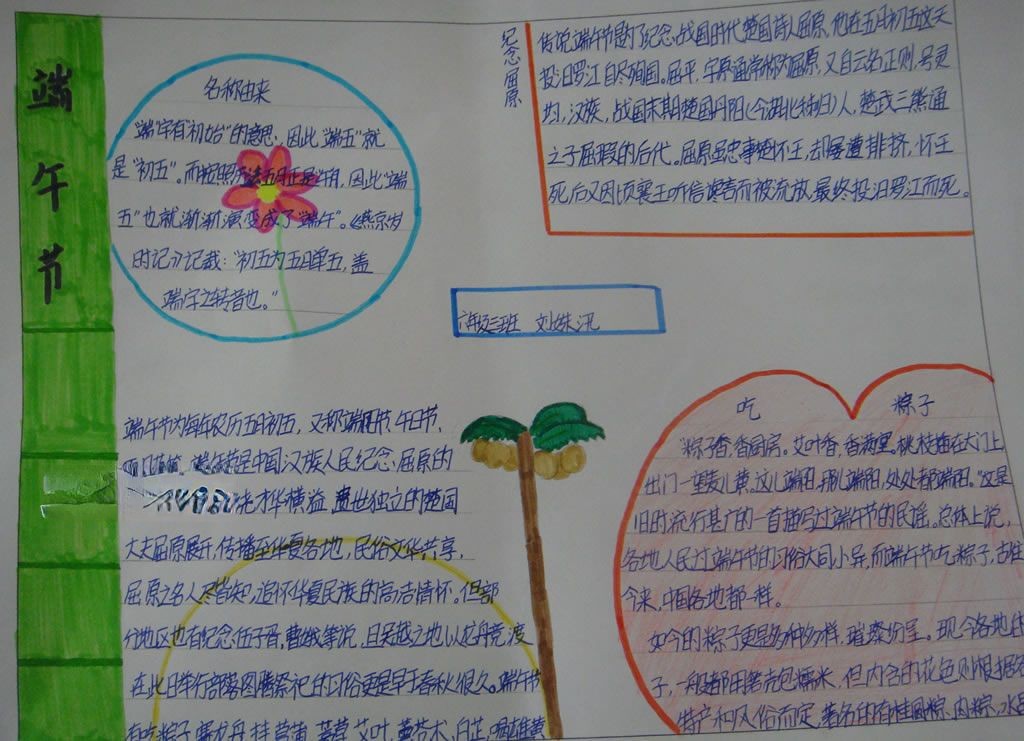 端午节
名称由来
"端"字有"初始"的意思,因此"端五"就
是"初五"。而按照历法五月正是"午"月,因此"端
五"也就渐渐演变成了"端午"。《燕京岁
时记》记载:"初五为五月单五,盖
端字之转音也。"
纪念屈原
传说端午节是为了纪念战国时代楚国诗人屈原,他在五月初五这天
投汨罗江自尽殉国。屈平,字原通常称为屈原,又自云名正则,号灵
均,汉族,战国末期楚国丹阳(今湖北秭归)人,楚武王熊通
之子屈瑕的后代。屈原虽忠事楚怀王,却屡遭排挤,怀王
死后又因顷襄王听信谗言而被流放,最终投汨罗江而死。
六年级三班 刘姝汛
端午节为每年农历五月初五,又称端阳节、午日节、
端午节是中国汉族人民纪念屈原的
才华横溢、遗世独立的楚国
大夫屈原展开,传播至华夏各地,民俗文华共享,
屈原之名人尽皆知,追怀华夏民族的高洁情怀。但部
分地区也有纪念伍子胥、曹娥等说,且吴越之地以龙舟竞渡
在此日举行部落图腾祭祀的习俗更是早于春秋很久。端午节
有吃粽子,赛龙舟,挂菖蒲、艾叶,薰苍术、白芷,喝雄黄
吃 粽子
"粽子香,香厨房。艾叶香,香满堂。桃枝插在大门上,
出门一望麦儿黄。这儿端阳,那儿端阳,处处都端阳。"这是
旧时流行甚广的一首描写过端午节的民谣。总体上说,
各地人民过端午节的习俗大同小异,而端午节吃粽子,古往
今来,中国各地都一样。
如今的粽子更是多种多样,璀璨纷呈。现今各地的
子,一般都用箬壳包糯米,但内含的花色则根据各
特产和风俗而定,著名的有桂圆粽、肉粽、水晶